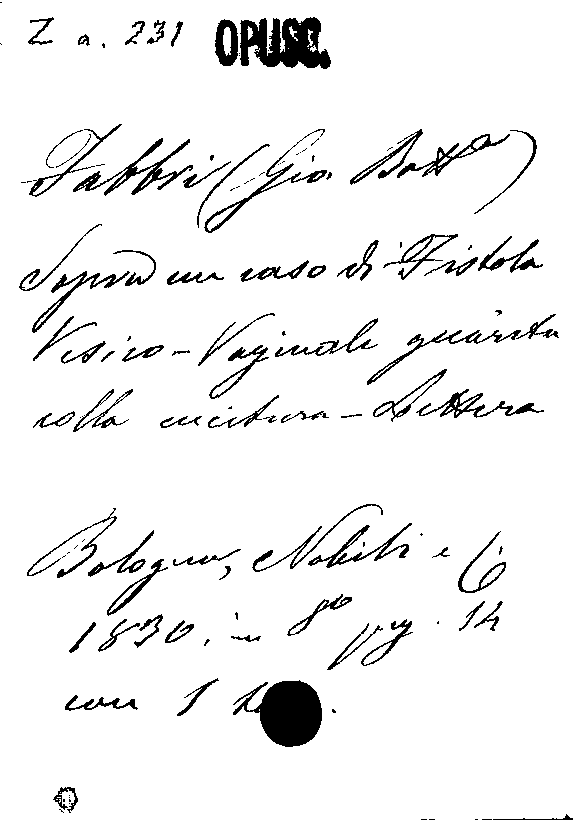 Z a. 231 OPUSC.
Fabbri (Gio. Batta)
Sopra un caso di Fistola
Vesico-Vaginale guarita
colla cucitura - Lettera
Bologna, Nobili e C.
1830. in 8º pag. 14
con 1